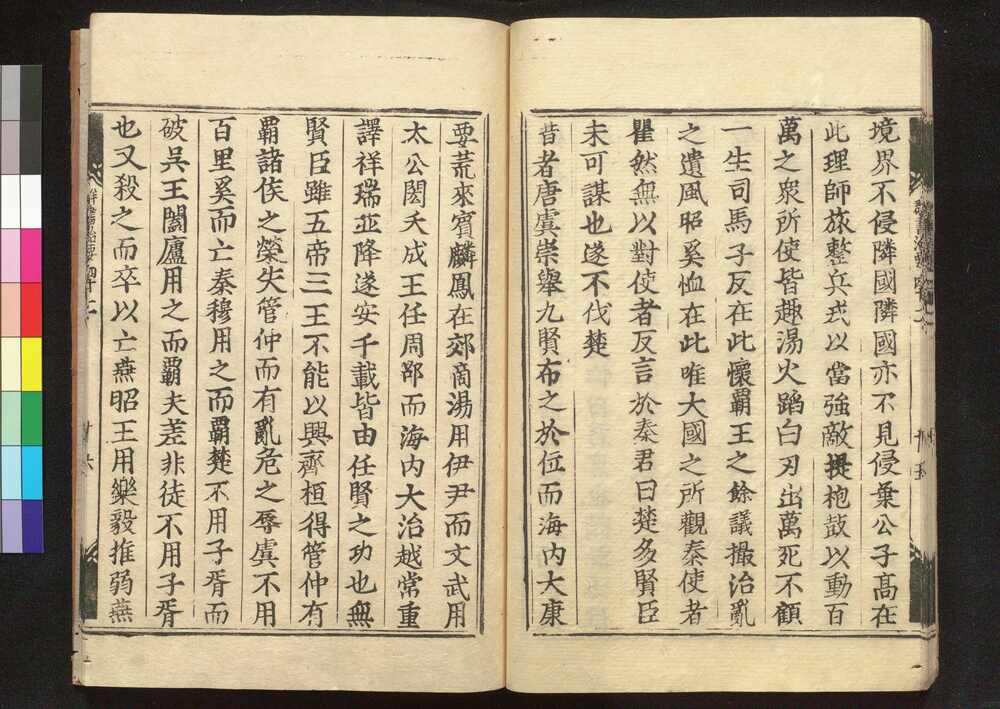 境界不侵隣國隣國亦不見侵葉公子高在
此理師旅整兵戎以當強敵提枹鼓以動百
萬之衆所使皆趣湯火蹈白刃出萬死不顧
一生司馬子反在此懷覇王之餘議撮治亂
之遺風昭奚恤在此唯大國之所觀秦使者
瞿然無以對使者反言於秦君曰楚多賢臣
未可謀也遂不伐楚
昔者唐虞崇舉九賢布之於位而海内大康
要荒來賓麟鳳在郊商湯用伊尹而文武用
太公閎夭成王任周郃而海内大治越常重
譯祥瑞並降遂安千載皆由任賢之功也無
賢臣雖五帝三王不能以興齊桓得管仲有
覇諸侯之榮失管仲而有亂危之辱虞不用
百里奚而亡秦穆用之而覇楚不用子胥而
破吳王闔廬用之而覇夫差非徒不用子胥
也又殺之而卒以亡燕昭王用樂毅推弱燕